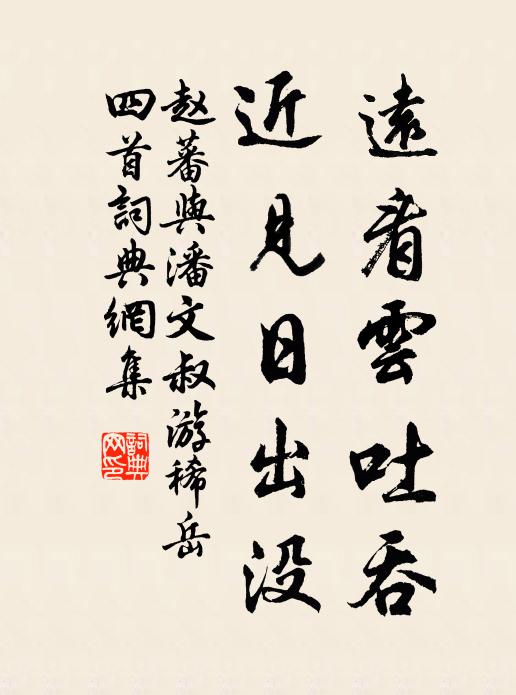 遠看雲吐吞
近見日出没
赵蕃與潘文叔游稀岳
四首詞典網集
詞典网印